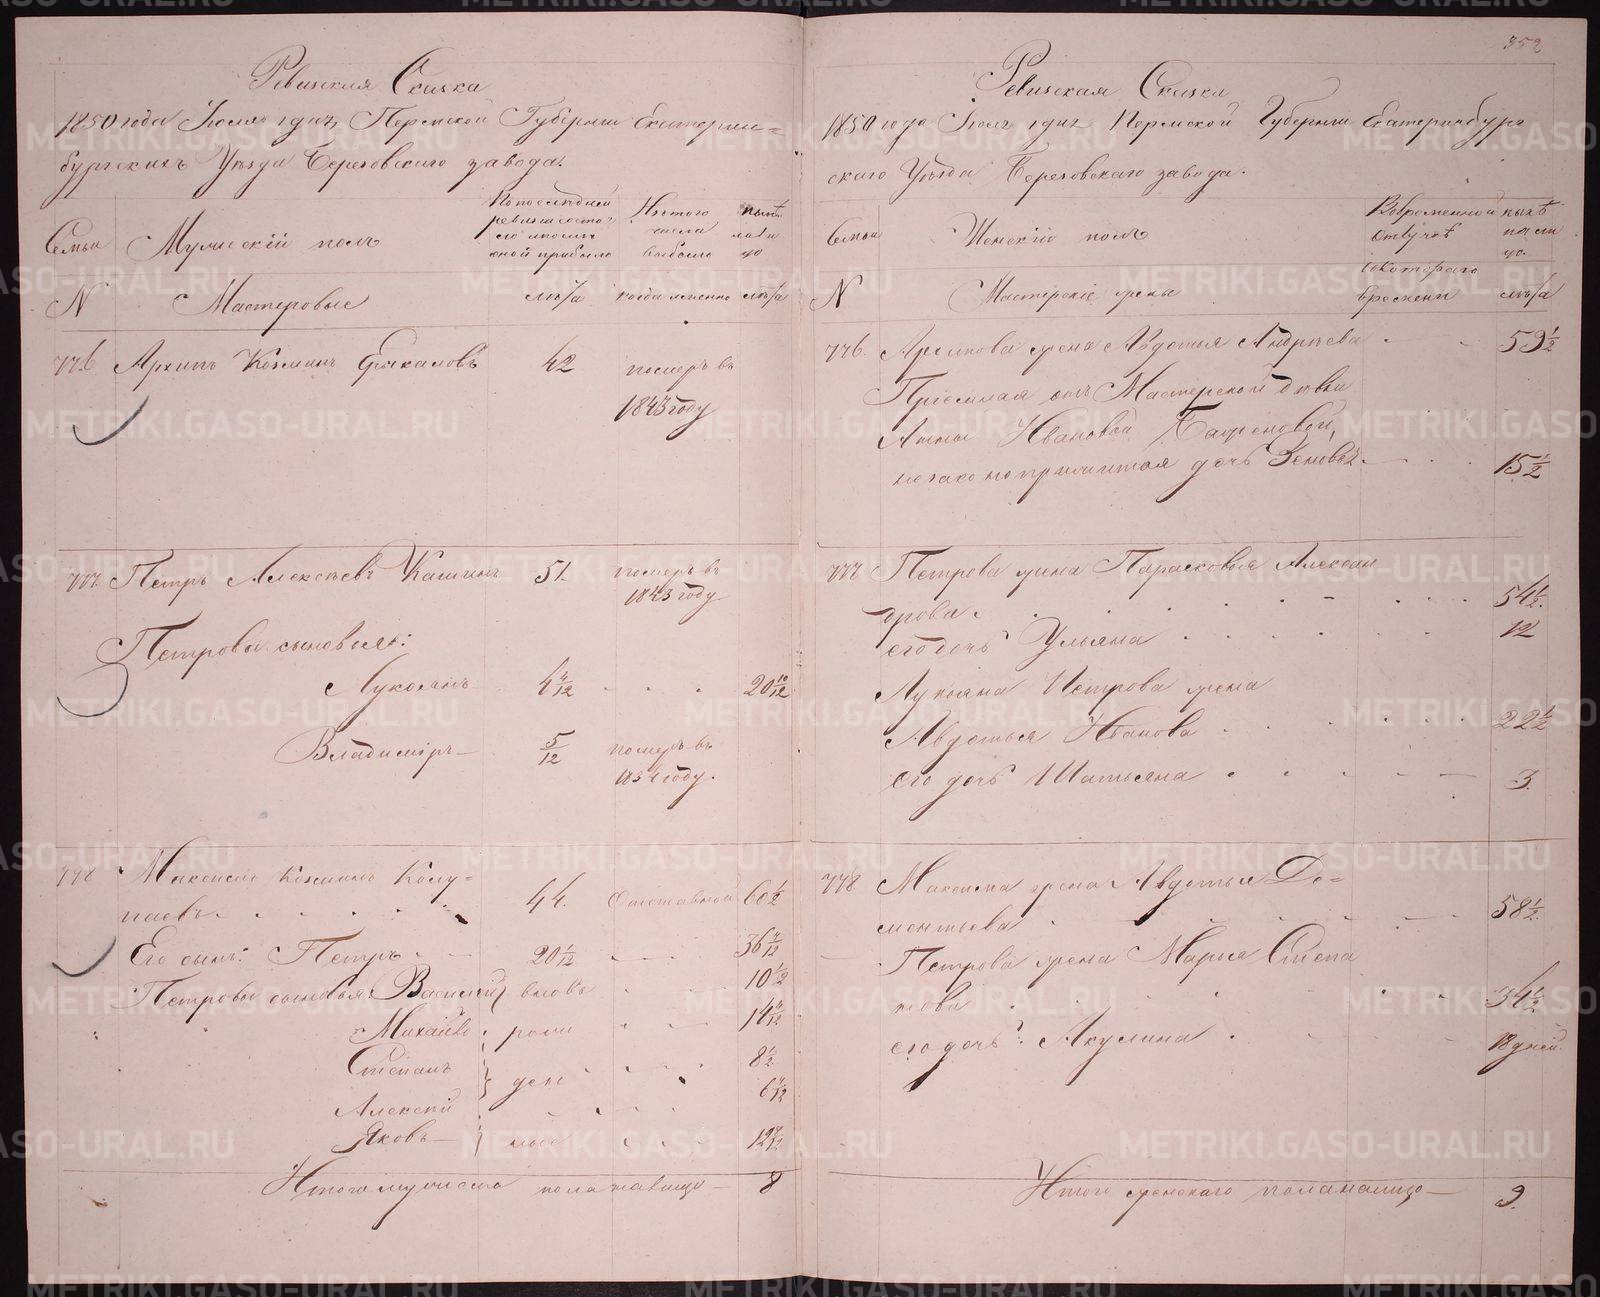 352
Ревизская Сказка
1850 года Июля 1 дня, Пермской Губернии Екатерин=
бургскихъ Уѣзда Березовскаго завода.
Семьи
Мужескій полъ
По последней
ревизіи состо
ной прибыло
Изъ того
числа
выбыло
нынѣ
на ли
цо
N
Мастеровые
лѣта
когда именно
лѣта
776 Архипъ Козминъ 42 померъ въ
1843 году
777. Петръ Алексѣевъ Кашинъ 51. померъ въ
1843 году
Петровы сыновья:
Лукоянъ 4 4/12 20 10/12
Владиміръ 5/12 померъ въ
1834 году.
778 Максимъ Козминъ Колу=
паевъ 44. Отставной 60 1/2
Его сынъ: Петръ 20 1/12 36 7/12
Петровы сыновья: Василій вновь 10 1/2
Михайло рож 14 4/12
Степанъ 8 1/2
Алексѣй ден 6 4/12
Яковъ ные
Итого мужеска пола на лицо 8
Ревизская Сказка
1850 года Июля 1 дня Пермской Губернии Екатеринбург
скаго Уѣзда Березовскаго завода.
Семьи
Женскій полъ
Въ временной
отлучкѣ
съ котораго
времени
нынѣ
на ли
цо.
лѣта
N
Мастерскіе жены
776. Архипова жена Авдотья Андрѣева 59 1/2
Пріемная отъ Мастерской дѣвки
Анны Ивановой
незаконоприжитая дочь 15 1/2
777 Петрова жена Парасковья Алексан
дрова 54 1/2.
его дочь Ульяна 12
Лукояна Петрова жена
Авдотья Иванова 22 1/2
его дочь Татьяна 3
778 Максима жена Авдотья Де=
ментьева 58 1/2.
Петрова жена Марья Степа
нова 34 1/2
его дочь: Акулина дней.
Итого женскаго пола на лицо 9.
METRIKI.GASO-URAL.RU